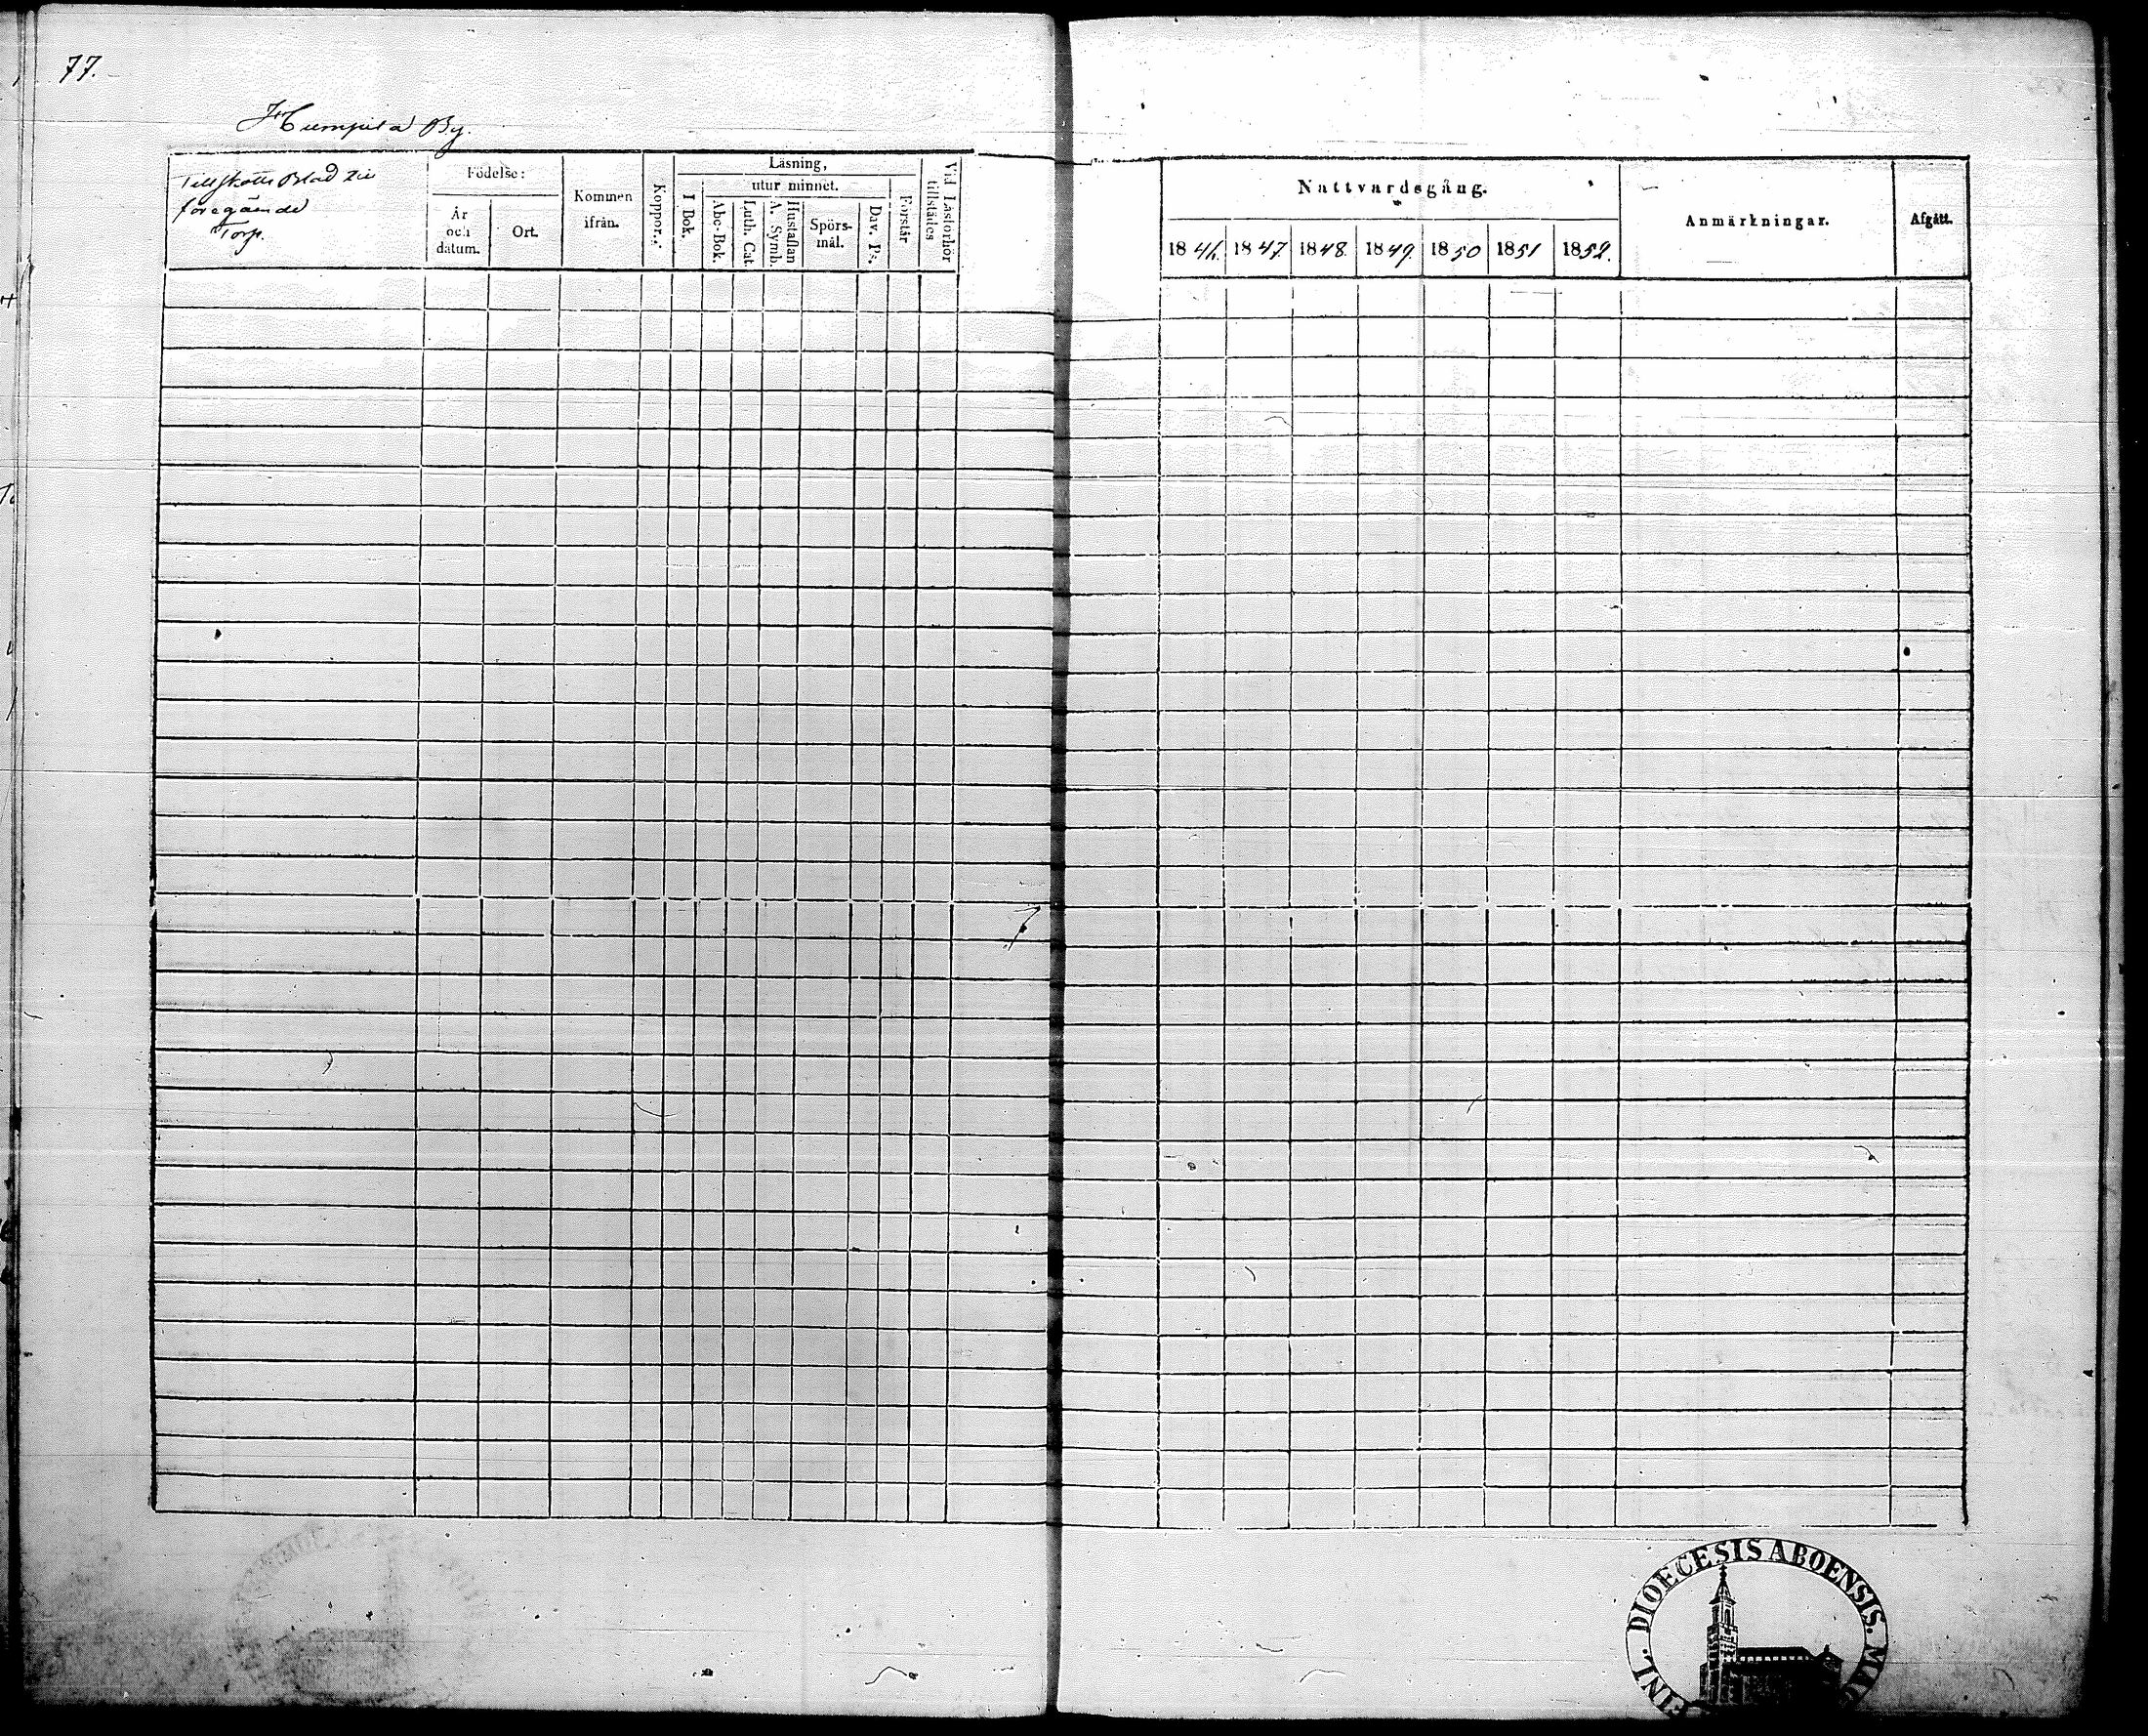 77.
Humpila By.
Tillskotts Blad till
föregående
Torp.
Födelse:
År
och
datum.
Ort.
Kommen
ifrån.
Koppor.
Läsning,
I Bok.
utur minnet.
Abc-Bok.
Luth. Cat.
A. Symb.
Hustaflan
Spörs-
mål.
Dav. Ps.
Förstår
Vid Läsförhör
tillstädes
Nattvardsgång.
1846. 1847. 1848. 1849. 1850 1851 1852.
Anmärkningar.
Afgått.
DIOECESIS ABOENSIS.